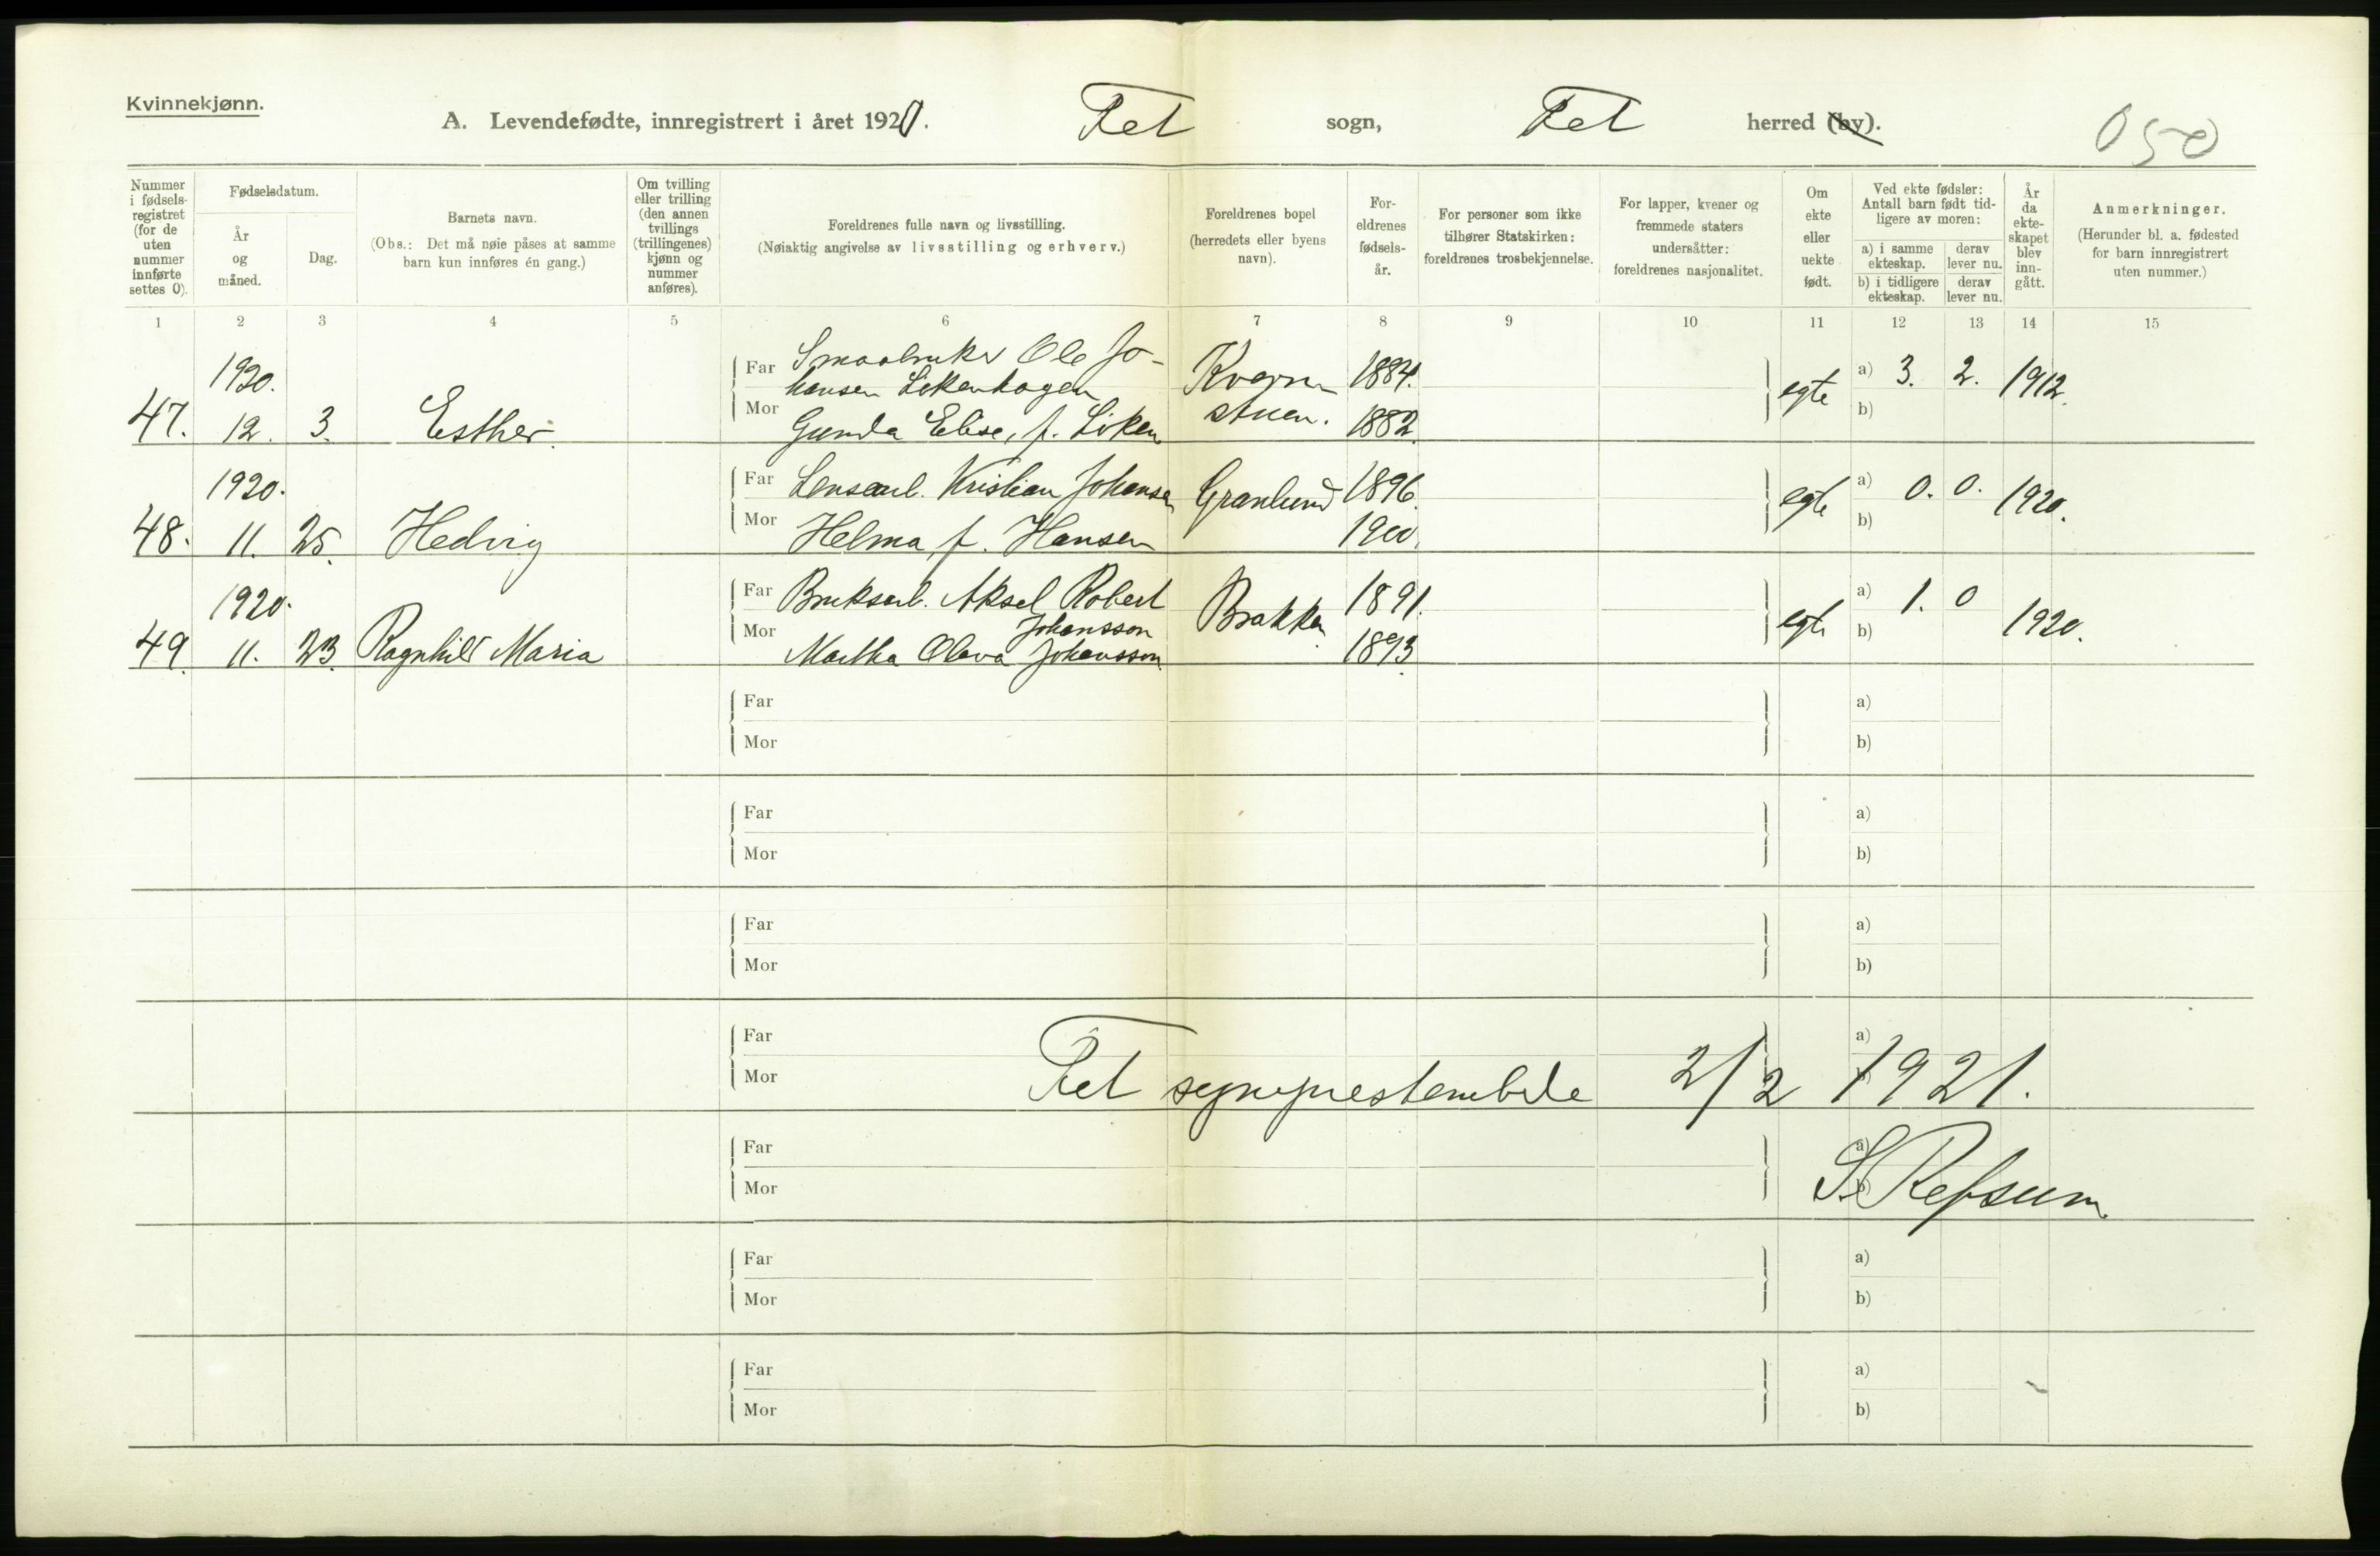 Kvinnekjønn.
A. Levendefødte, innregistrert i året 1920. Fet sogn, Fet herred (by).
050
Nummer i fødselsregistret (for de uten nummer innførte settes 0).
Fødselsdatum.
År og måned.
Dag.
Barnets navn.
(Obs.: Det må nøie påses at samme barn kun innføres én gang.)
Om tvilling eller trilling (den annen tvillings (trillingenes) kjønn og nummer anføres).
Foreldrenes fulle navn og livsstilling.
(Nøiaktig angivelse av livsstilling og erhverv.)
Foreldrenes bopel (herredets eller byens navn).
Foreldrenes fødselsår.
For personer som ikke tilhører Statskirken: foreldrenes trosbekjennelse.
For lapper, kvener og fremmede staters undersåtter: foreldrenes nasjonalitet.
Om ekte eller uekte født.
Ved ekte fødsler: Antall barn født tidligere av moren:
a) i samme ekteskap.
derav lever nu.
b) i tidligere ekteskap.
derav lever nu.
År da ekteskapet blev inngått.
Anmerkninger.
(Herunder bl. a. fødested for barn innregistrert uten nummer.)
1 2 3 4 5 6 7 8 9 10 11 12 13 14 15
47. 1920. 12. 3. Esther.
Far Smaabruker Ole Johansen Likenhagen
Mor Gunda Elise, f. Liken
Kvernstuen. 1884. 1882. egte a) 3. 2. 1912.
b)
48. 1920. 11. 25. Hedvig
Far Lensearb. Kristian Johansen
Mor Helma f. Hansen
Granlund 1896. 1900. egte a) 0. 0. 1920.
b)
49. 1920. 11. 23. Ragnhild Maria
Far Bruksarb. Aksel Robert Johansson
Mor Martha Olava Johansson
Brakken 1891. 1893. egte a) 1. 0 1920.
b)
Far a)
Mor b)
Far a)
Mor b)
Far a)
Mor b)
Far a)
Mor b)
Fet sogneprestembede 2/2 1921.
Far a)
Mor b)
S. Refsum
Far a)
Mor b)
Far a)
Mor b)